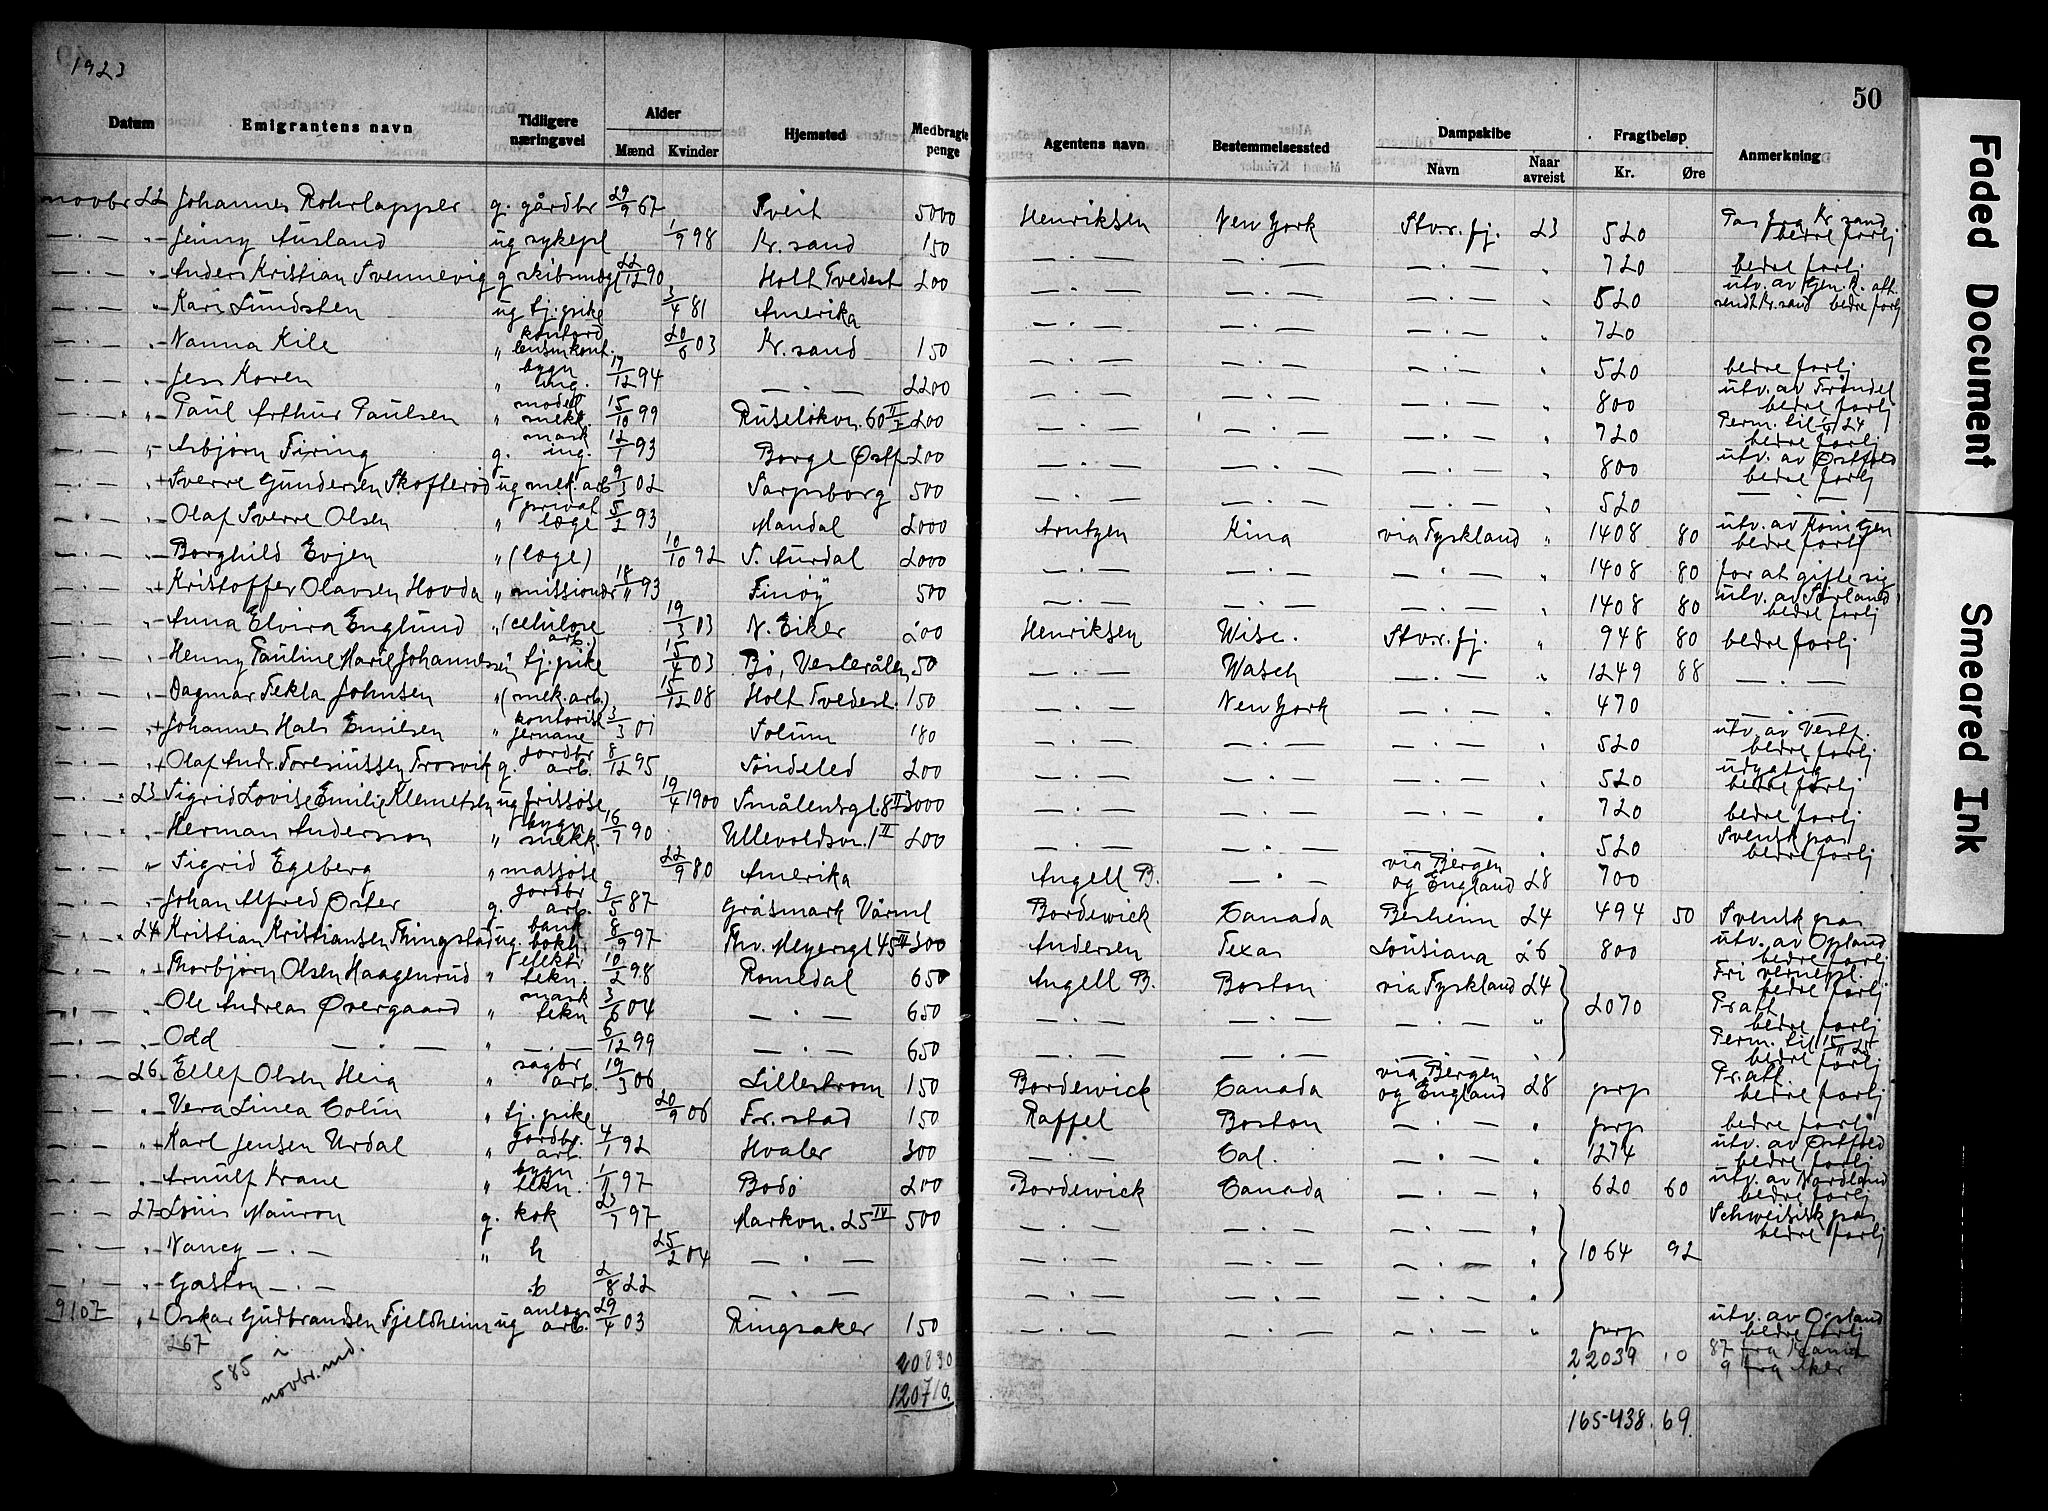 1923
50
Datum Emigrantens navn Tidligere næringsvei Alder Mænd Kvinder Hjemsted Medbragte penge Agentens navn Bestemmelsessted Dampskibe Navn Naar avreist Fragtbeløp Kr. Øre Anmerkning
novbr 22 Johannes Rohrlapper g. gårdbr 29/9 67 Tveit 5000 Henriksen New York Stvr. fj. 23 520 Pas fra Kr. sand bedre forlj
— · — „ Jenny Ausland ug sykepl 1/9 98 Kr. sand 150 — · — — · — — · — „ 720 bedre forlj
— · — „ Anders Kristian Svennevig g skibsm 22/12 90 Holt Tvedest 200 — · — — · — — · — „ 520 utv. av Kr. sand bedre forlj
— · — „ Kari Lundsten ug tj. pike 3/4 81 Amerika — · — — · — — · — „ 720
— · — „ Nanna Kile „ kontord 20/6 03 Kr. sand 150 — · — — · — — · — „ 520 bedre forlj
— · — „ Jess Koren „ bygn ing. 17/12 94 — · — 2200 — · — — · — — · — „ 800 utv. av Trøndel bedre forlj
— · — „ Paul Arthur Paulsen „ model snekk. 15/10 99 Ruseløkvn. 60 II 200 — · — — · — — · — „ 720 Perm. til 24 bedre forlj
— · — „ Asbjørn Firing g. mask ing. 12/1 93 Borge Østf 200 — · — — · — — · — „ 800 utv. av Østfold bedre forlj
— · — „ Sverre Gundersen Skofterød ug mek. arb 9/3 02 Sarpsborg 500 — · — — · — — · — „ 520 — · —
— · — „ Olaf Sverre Olsen „ privat læge 5/2 93 Mandal 2000 Arntzen Kina via Tyskland „ 1408 80 utv. av bedre forlj
— · — „ Borghild Evjen „ (læge) 10/10 92 S. Aurdal 2000 — · — — · — — · — „ 1408 80 for at gifte sig
— · — „ Kristoffer Olavsen Hovda „ missionær 18/„ 93 Finøy 500 — · — — · — — · — „ 1408 80 utv. av Sørland bedre forlj
— · — „ Anna Elvira Englund „ (celulose arb.) 19/3 03 N. Eiker 200 Henriksen Wisc. Stvr. fj. „ 948 80 bedre forlj
— · — „ Henny Pauline Marie Johannessen „ tj. pike 15/4 03 Bø, Vesterålen 50 — · — Wasch — · — „ 1249 88 — · —
— · — „ Dagmar Tekla Johnsen „ (mek. arb.) 15/12 08 Holt Tvedest. 150 — · — New York — · — „ 470 — · —
— · — „ Johannes Hals Emilsen „ kontorist 3/3 01 Solum 180 — · — — · — — · — „ 520 utv. av Vestf. bedre forlj
— · — „ Olaf Andr. Toresnussen Trosvik g. jordbr arb. 8/12 95 Søndeled 200 — · — — · — — · — „ 520 udygtig bedre forlj
— · — 23 Sigrid Lovise Emilie Klemetsen ug frissøse 19/4 1900 Smålensgt. 8 II 3000 — · — — · — — · — „ 720 bedre forlj
— · — „ Herman Andersson „ bygn snekk. 16/7 90 Ullevoldsvn. 1 II 200 — · — — · — — · — „ 520 Svensk pas bedre forlj
— · — „ Sigrid Egeberg „ massøse 22/9 80 Amerika Angell B. — · — via Bergen og England 28 700
— · — „ Johan Alfred Øster g. jordbr arb. 9/5 87 Gråsmark Värml Bordewick Canada Besheim 24 494 50 Svensk pas
— · — 24 Kristian Kristiansen Thingstad ug. bank bokh. 8/9 97 Thv. Meyersgt 45 III 300 Andersen Texas Louisiana 26 800 utv. av Opland bedre forlj
— · — „ Thorbjørn Olsen Haagenrud „ elektr tekn. 10/2 98 Romedal 650 Angell B. Boston via Tyskland 24 Fri vernepl. bedre forlj
— · — „ Ole Andreas Øvergaard „ mask tekn 3/6 04 — · — 650 — · — — · — — · — „ 2070 Pr. att bedre forlj
— · — „ Odd — · — „ — · — 6/12 99 — · — 650 — · — — · — — · — Perm. til 15/II 25 bedre forlj
— · — 26 Ellef Olsen Heia „ sagbr arb. 19/3 06 Lillestrøm 150 Bordewick Canada via Bergen og England 28 prp Pr. att bedre forlj
— · — „ Vera Linea Colin „ tj. pike 20/9 06 Fr. stad 150 Raffel Boston — · — „ prp bedre forlj
— · — „ Karl Jensen Urdal „ jordbr. arb. 4/1 92 Hvaler 300 — · — Cal. — · — „ 1274 utv. av Østfold bedre forlj
— · — „ Arnulf Krane „ bygn tekn. 1/11 97 Bodø 200 Bordewick Canada — · — „ 620 60 utv. av Nordland bedre forlj
— · — 27 Louis Mauron g. kok 23/7 97 Markvn. 25 IV 500 — · — — · — — · — „ Schweitisk pas bedre forlj
— · — „ Nancy — · — „ h 25/2 04 — · — — · — — · — — · — „ 1064 92
— · — „ Gaston — · — b 2/8 22 — · — — · — — · — — · — „
9107 „ Oskar Gudbrandsen Fjeldheim ug anlegs arb. 29/4 03 Ringsaker 150 — · — — · — — · — „ prp utv. av Opland bedre forlj
267 20830 22039 10 87 fra Krania
585 i novbr. md. 120710. 9 fra Aker
165-438. 69.
Faded Document
Smeared Ink